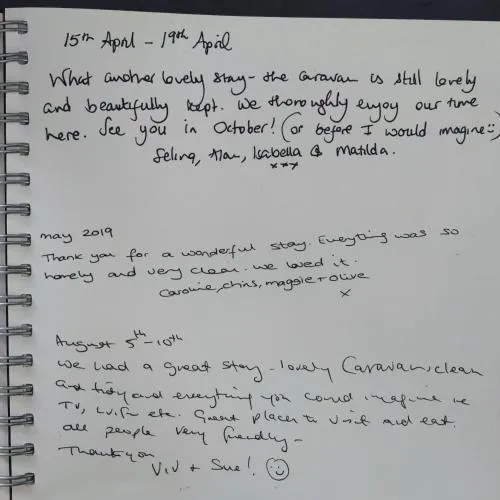 15th April - 19th April
What another lovely stay - the caravan is still lovely
and beautifully kept. We thoroughly enjoy our time
here. See you in October! (or before I would imagine :)
Selina, Alan, Isabella & Matilda.
xxx
may 2019
Thank you for a wonderful stay. Everything was so
homely and very clean. we loved it.
Caroline, Chris, maggie + Olive
x
August 5th - 10th
We had a great stay - lovely Caravan, clean
and tidy and everything you could imagine ie
TV, etc. Great places to visit and eat.
all people very friendly -
Thankyou
Viv + Sue!